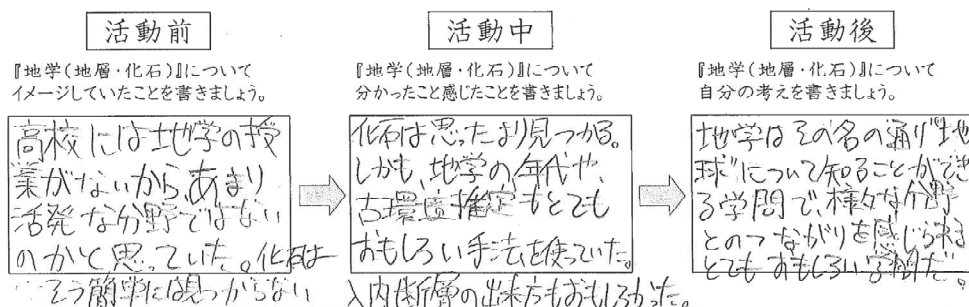 活動前
『地学(地層・化石)』について
イメージしていたことを書きましょう。
高校には地学の授
業がないから、あまり
活発な分野ではない
のかと思っていた。化石は
そう簡単には見つからない
活動中
『地学(地層・化石)』について
分かったこと感じたことを書きましょう。
化石は思ったより見つかる。
しかも、地学の年代や、
古環境推定もとても
おもしろい手法を使っていた。
入内断層の出来方もおもしろかった。
活動後
『地学(地層・化石)』について
自分の考えを書きましょう。
地学はその名の通り"地
球"について知ることができ
る学問で、様々な分野
とのつながりを感じられる
とてもおもしろい学問だ。